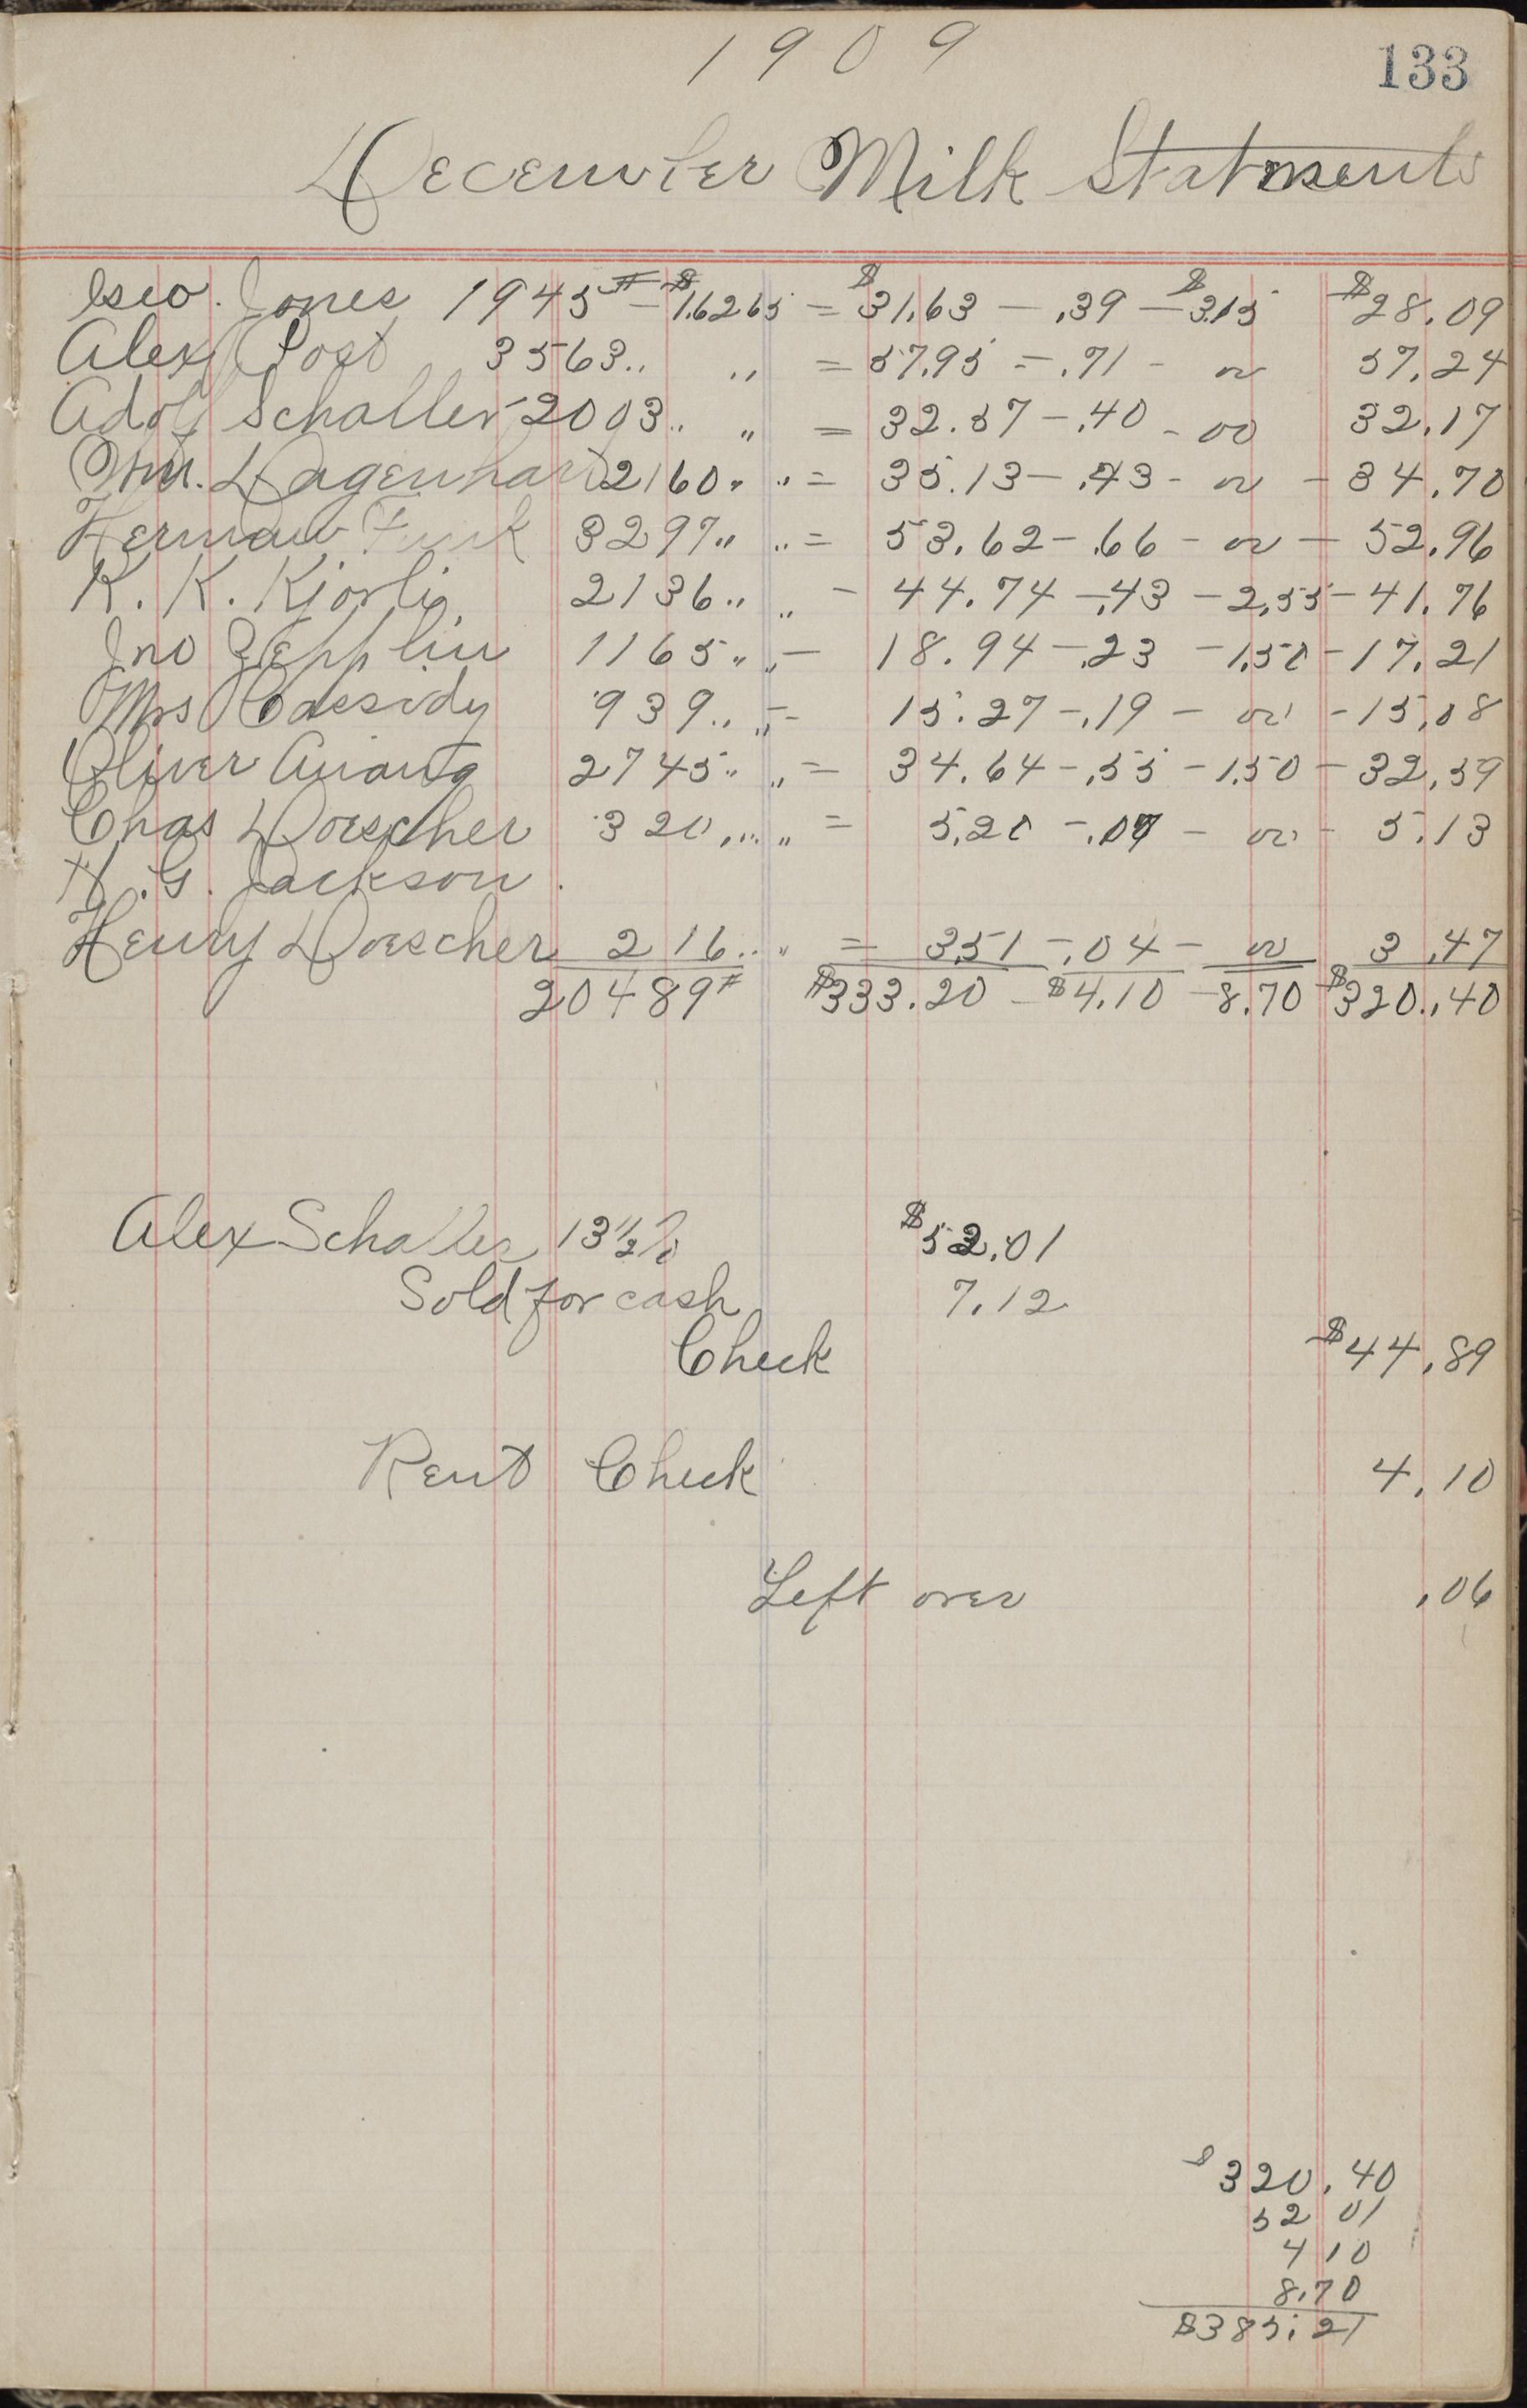 1909
133
December Milk Statments
Geo. Jones 1945# - $1.6265 = $31.63 - .39 - $3.15 $28.09
Alex Post 3563 " " = 57.95 - .71 - oo 57.24
Adolf Schaller 2003 " " = 32.57 - .40 - oo 32.17
Wm. Dagenhart 2160 " " = 35.13 - .43 - oo - 34.70
Herman Funk 3297 " " = 53.62 - .66 - oo - 52.96
K. K. Kjorlie 2136 " " - 44.74 - .43 - 2.55 - 41.76
Jno Zepplin 1165 " " - 18.94 - .23 - 1.50 - 17.21
Mrs Cassidy 939 " " = 15.27 - .19 - oo - 15.08
Oliver 2745 " " = 34.64 - .55 - 1.50 - 32.59
Chas Doescher 320 " " = 5.20 - .07 - oo - 5.13
H. G. Jackson.
Henry Doescher 216 " " = 3.51 - .04 - oo 3.47
20489# $333.20 - $4.10 - 8.70 $320.40
Alex Schaller 13 1/2 % $52.01
Sold for cash 7.12
Check $44.89
Rent Check 4.10
Left over .06
$320.40
52 01
4 10
8.70
$385.21